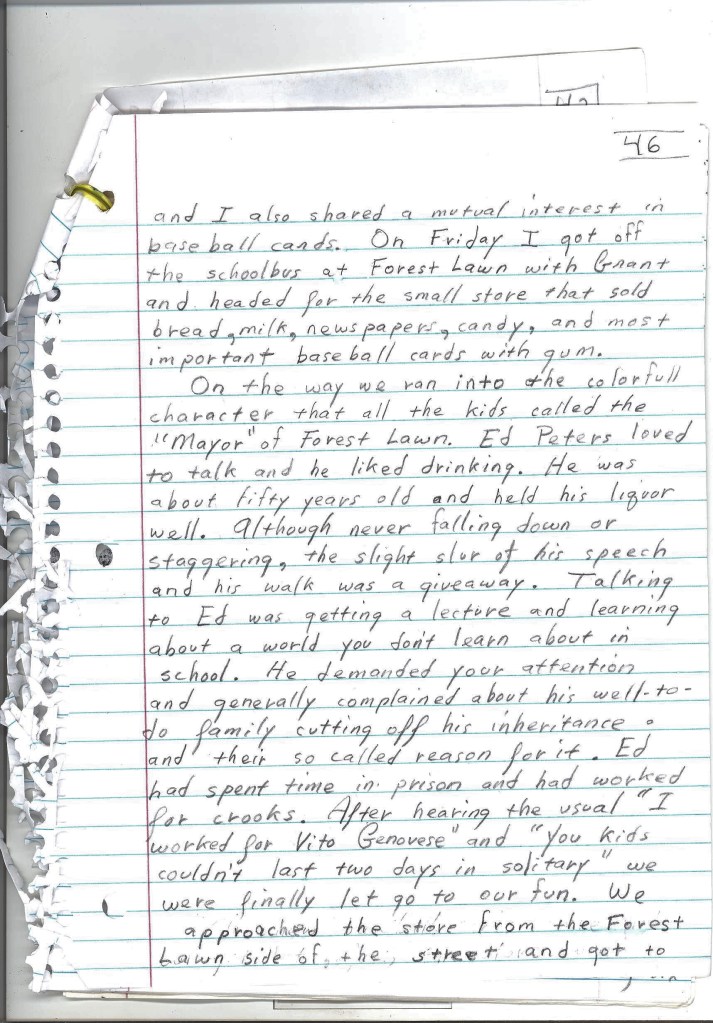 46
and I also shared a mutual interest in
baseball cards. On Friday I got off
the schoolbus at Forest Lawn with Grant
and headed for the small store that sold
bread, milk, newspapers, candy, and most
important baseball cards with gum.
On the way we ran into the colorfull
character that all the kids called the
"Mayor" of Forest Lawn. Ed Peters loved
to talk and he liked drinking. He was
about fifty years old and held his liquor
well. Although never falling down or
staggering, the slight slur of his speech
and his walk was a giveaway. Talking
to Ed was getting a lecture and learning
about a world you don't learn about in
school. He demanded your attention
and generally complained about his well-to-
do family cutting off his inheritance.
and their so called reason for it. Ed
had spent time in prison and had worked
for crooks. After hearing the usual "I
worked for Vito Genovese" and "You kids
couldn't last two days in solitary" we
were finally let go to our fun. We
approached the store from the Forest
Lawn side of the street and got to